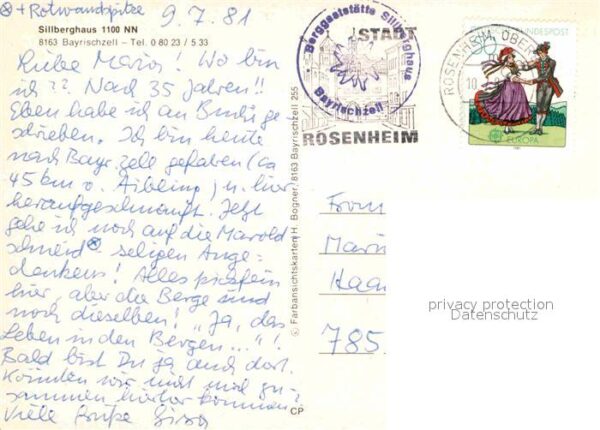 ⊗ + Rotwandspitze 9.7.81
Sillberghaus 1100 NN
8163 Bayrischzell – Tel. 0 80 23 / 5 33
Liebe Maria! Wo bin
ich?? Nach 35 Jahren!!
Eben habe ich an Burli ge-
schrieben. Ich bin heute
nach Bayr. zell gefahren (ca
45 km v. Aibling) u. hier
heraufgeschnauft. Jetzt
gehe ich noch auf die Marold
schneid ⊗ seligen Ange-
denkens! Alles picofein
hier, aber die Berge sind
noch dieselben! "Ja, das
Leben in den Bergen..."!
Bald bist Du ja auch dort.
Könnten wir nicht mal zu-
sammen hierher kommen?
Viele Grüße
© Farbansichtskarten H. Bogner, 8163 Bayrischzell 255
CP
Berggaststätte Sillberghaus
Bayrischzell
STADT
ROSENHEIM
ROSENHEIM, OBERB
10
BUNDESPOST
EUROPA
Frau
Haa
785
privacy protection
Datenschutz